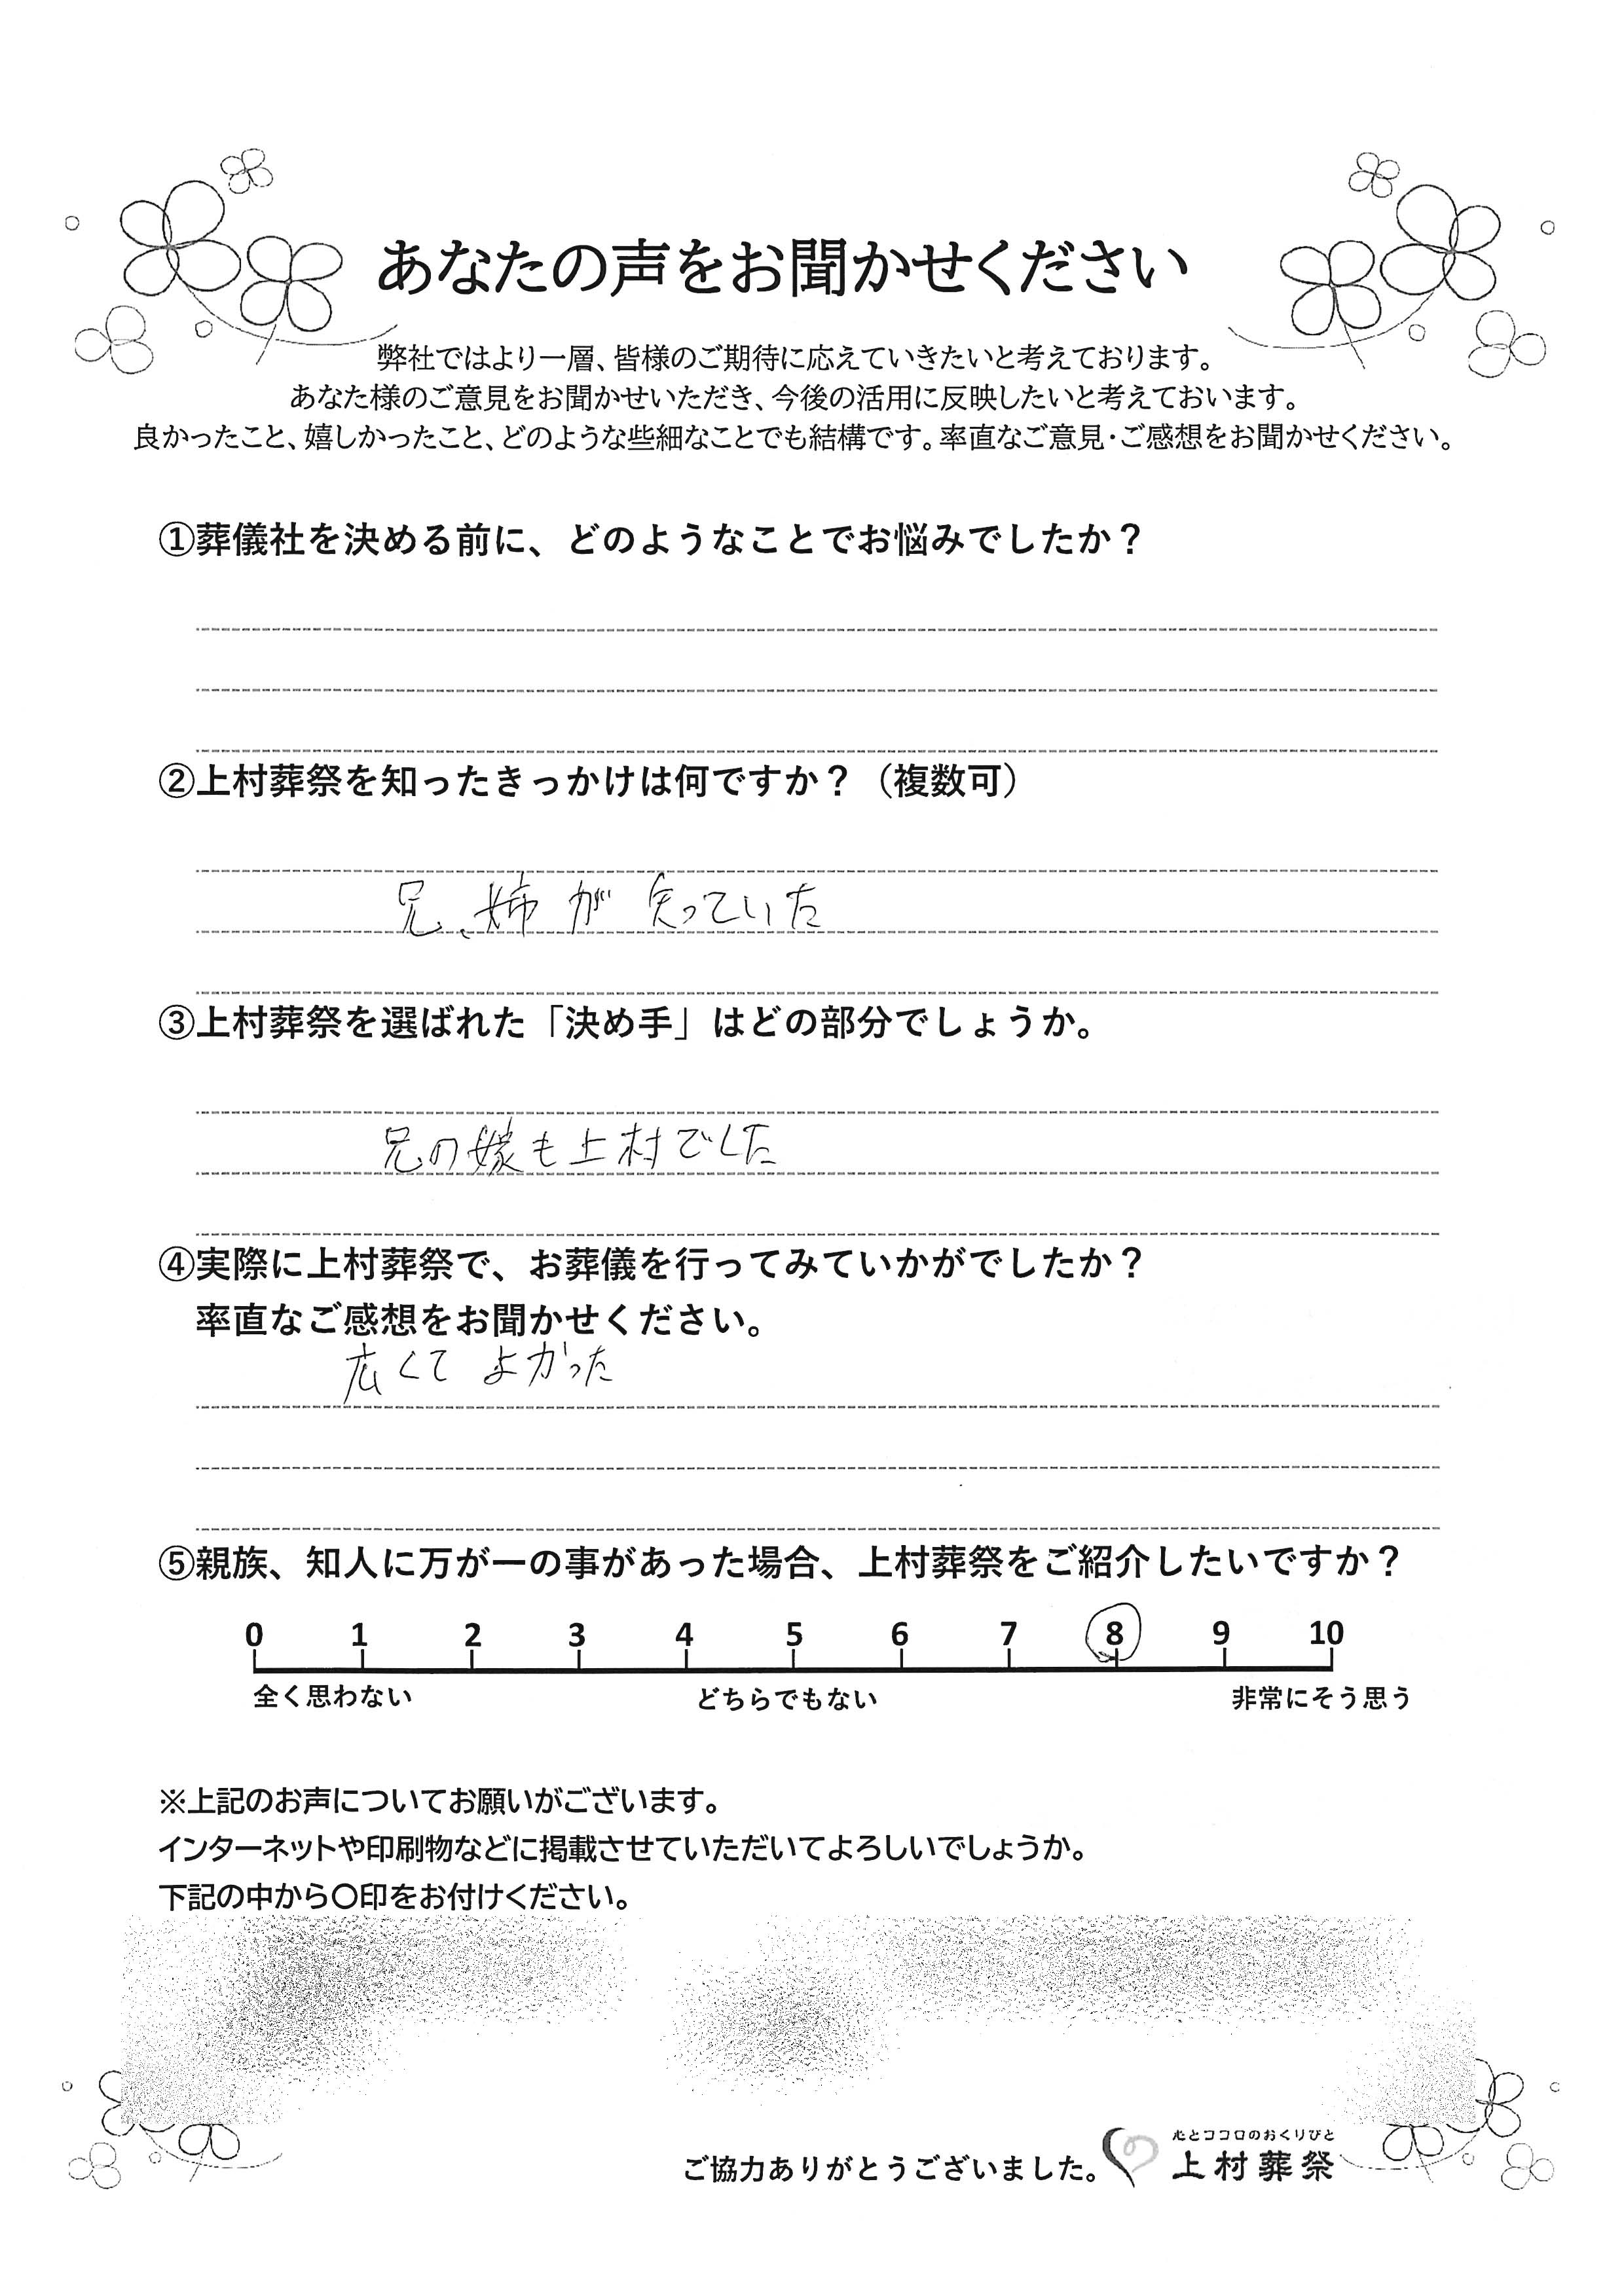 あなたの声をお聞かせください
弊社ではより一層、皆様のご期待に応えていきたいと考えております。
あなた様のご意見をお聞かせいただき、今後の活用に反映したいと考えておいます。
良かったこと、嬉しかったこと、どのような些細なことでも結構です。率直なご意見・ご感想をお聞かせください。
①葬儀社を決める前に、どのようなことでお悩みでしたか？
②上村葬祭を知ったきっかけは何ですか？（複数可）
兄、姉が知っていた
③上村葬祭を選ばれた「決め手」はどの部分でしょうか。
兄の嫁も上村でした
④実際に上村葬祭で、お葬儀を行ってみていかがでしたか？
率直なご感想をお聞かせください。
広くてよかった
⑤親族、知人に万が一の事があった場合、上村葬祭をご紹介したいですか？
0 1 2 3 4 5 6 7 8 9 10
全く思わない どちらでもない 非常にそう思う
※上記のお声についてお願いがございます。
インターネットや印刷物などに掲載させていただいてよろしいでしょうか。
下記の中から〇印をお付けください。
心とココロのおくりびと
ご協力ありがとうございました。 上村葬祭